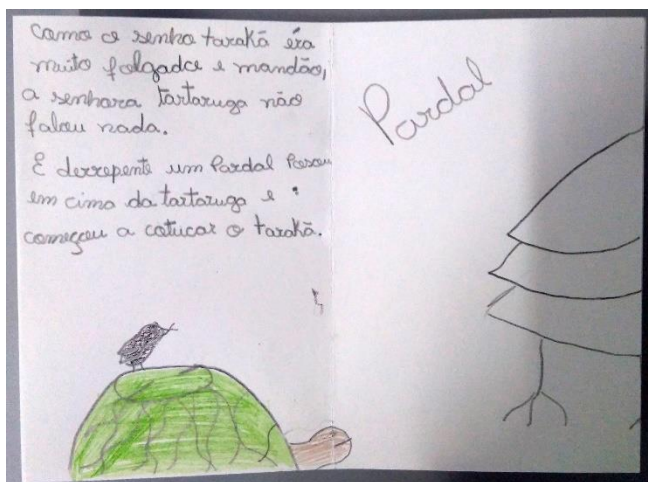 Como o senho tarakã éra
muito folgadoe e mandão,
a senhora tartaruga não
falou nada.
E derrepente um Pardal Posou
em cima da tartaruga e
começou a catucar o tarakã.
Pardal